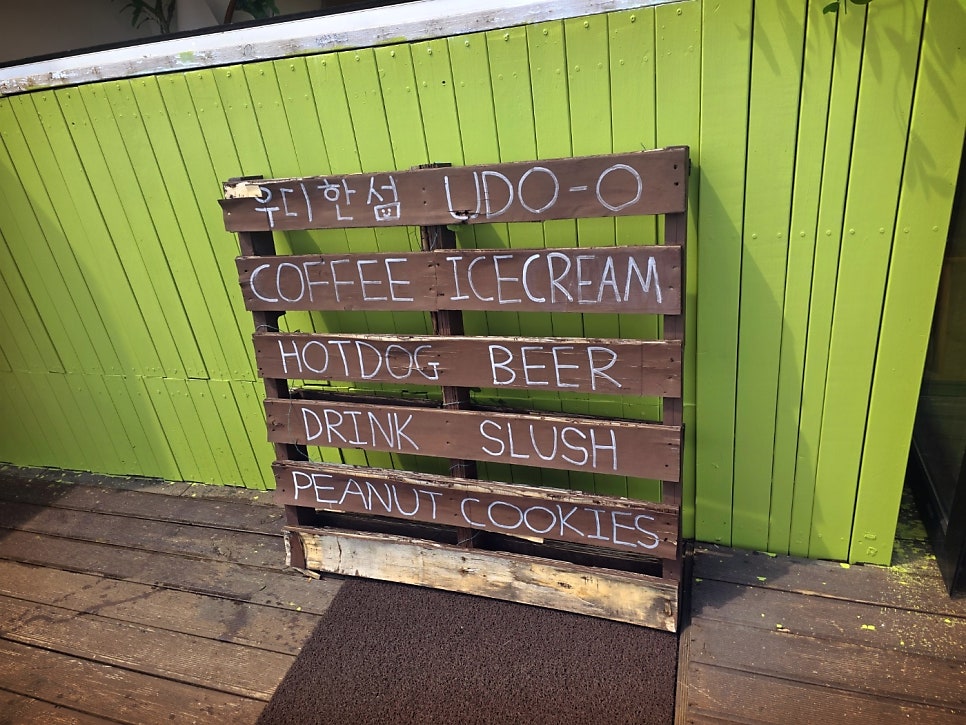 우디한섬 UDO-O
COFFEE ICECREAM
HOTDOG BEER
DRINK SLUSH
PEANUT COOKIES